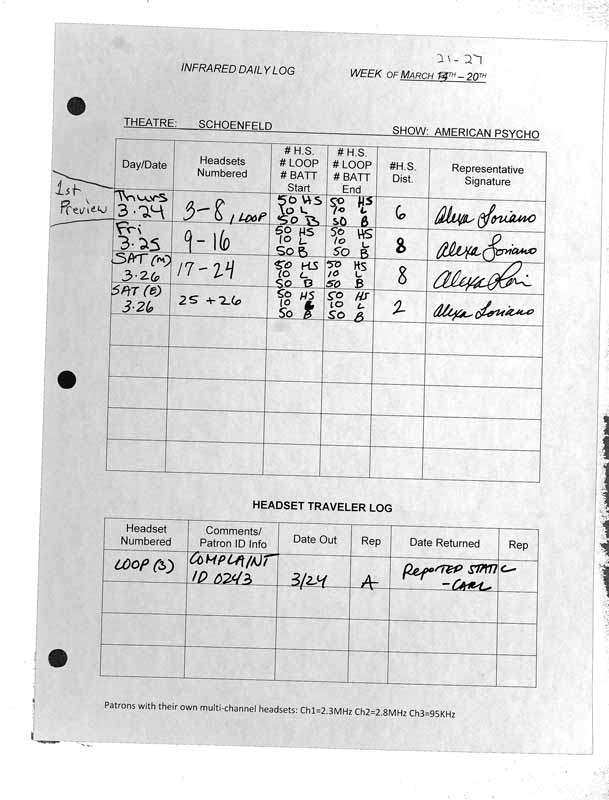 21-27
INFRARED DAILY LOG WEEK OF MARCH 14TH – 20TH
THEATRE: SCHOENFELD SHOW: AMERICAN PSYCHO
Day/Date Headsets Numbered # H.S. # LOOP # BATT Start # H.S. # LOOP # BATT End #H.S. Dist. Representative Signature
1st Preview
Thurs 3.24 3-8, LOOP 50 HS 10 L 50 B 50 HS 10 L 50 B 6 Alexa Soriano
Fri 3.25 9-16 50 HS 10 L 50 B 50 HS 10 L 50 B 8 Alexa Soriano
SAT (M) 3.26 17-24 50 HS 10 L 50 B 50 HS 10 L 50 B 8 Alexa
SAT (E) 3.26 25 + 26 50 HS 10 L 50 B 50 HS 10 L 50 B 2 Alexa Soriano
HEADSET TRAVELER LOG
Headset Numbered Comments/ Patron ID Info Date Out Rep Date Returned Rep
LOOP (3) COMPLAINT ID 0243 3/24 A Reported STATIC - CARL
Patrons with their own multi-channel headsets: Ch1=2.3MHz Ch2=2.8MHz Ch3=95KHz